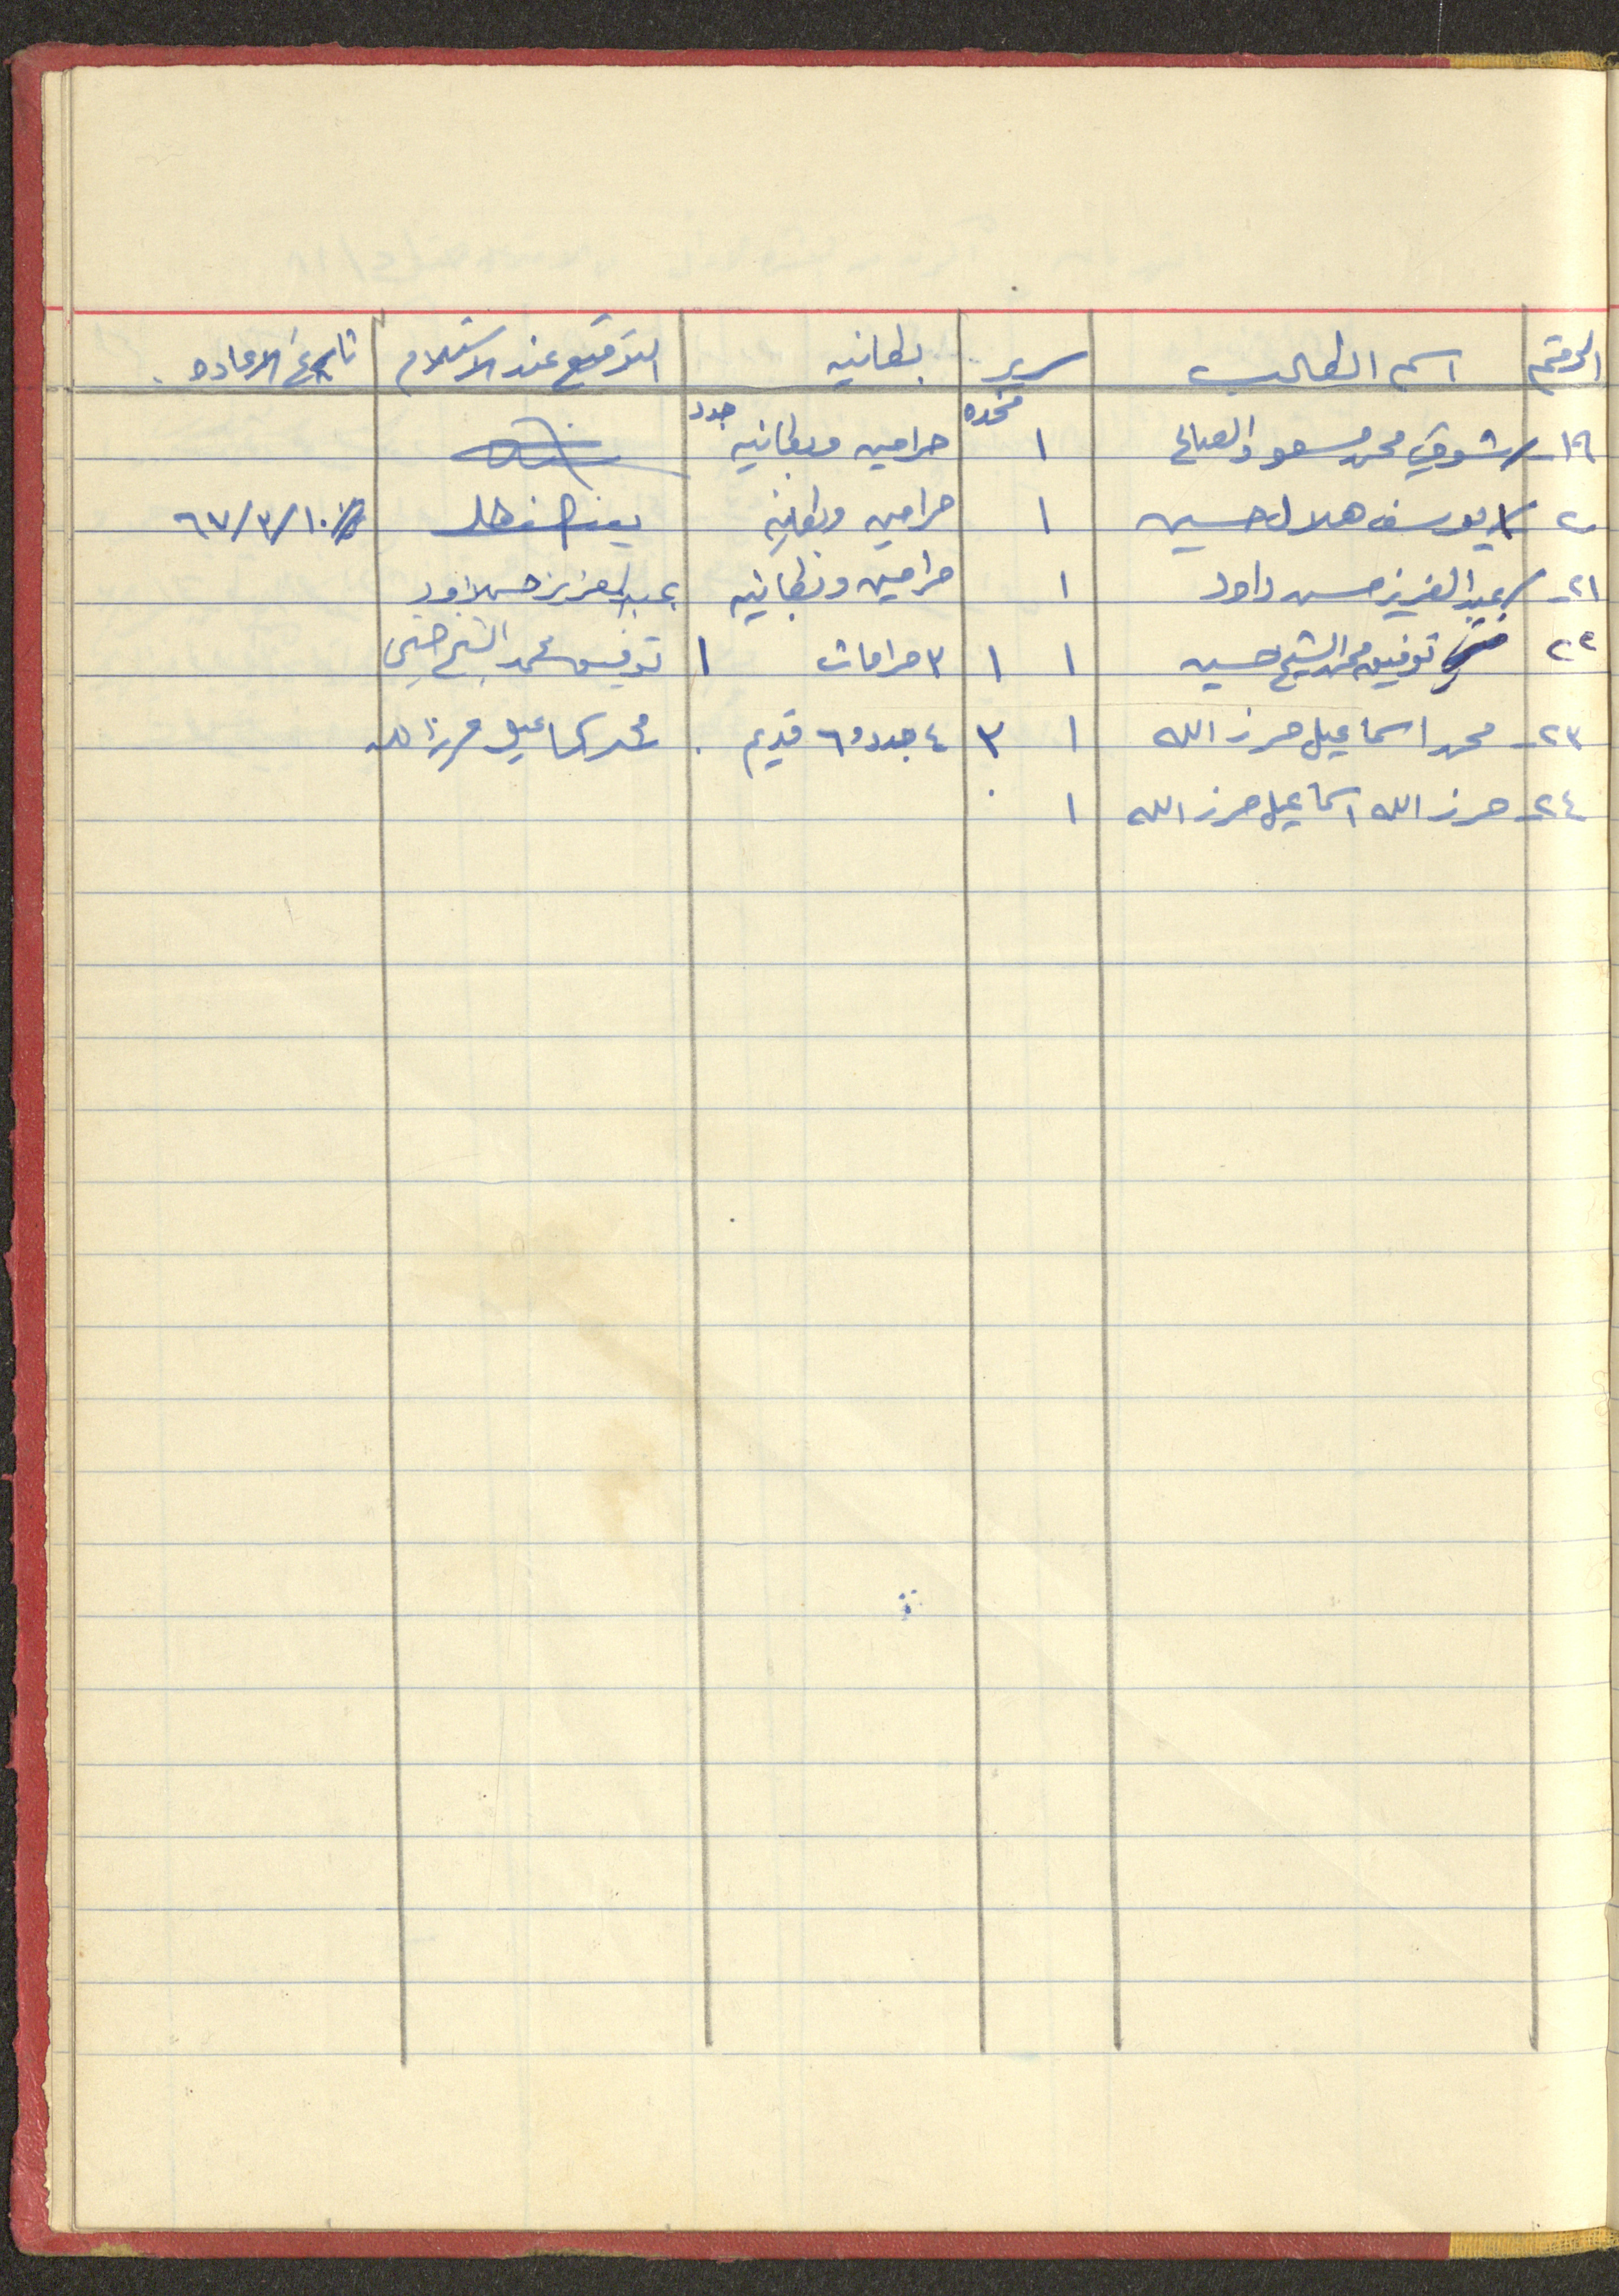 الرقم اسم الطالب سرير بطانيه التوقيع عند الاستلام تاريخ الاعاده
مخده جدد
١٩ شوقي محمد مسعود الصالح ١ حرامين وبطانيه
٢٠ يوسف هلال حسين ١ حرامين وبطانيه ٦٧/٣/١٠
٢١- عبد العزيز حسن داود ١ حرامين وبطانيه عبد العزيز حسن داود
٢٢ توفيق محمد الشيخ حسين ١ ١ ٣ حرامات ١ توفيق محمد الشيخ حسين
٢٣- محمد اسماعيل حرز الله ١ ٣ ٤ جدد و ٦ قديم . محمد اسماعيل حرز الله
٢٤- حرز الله اسماعيل حرز الله ١ ٠